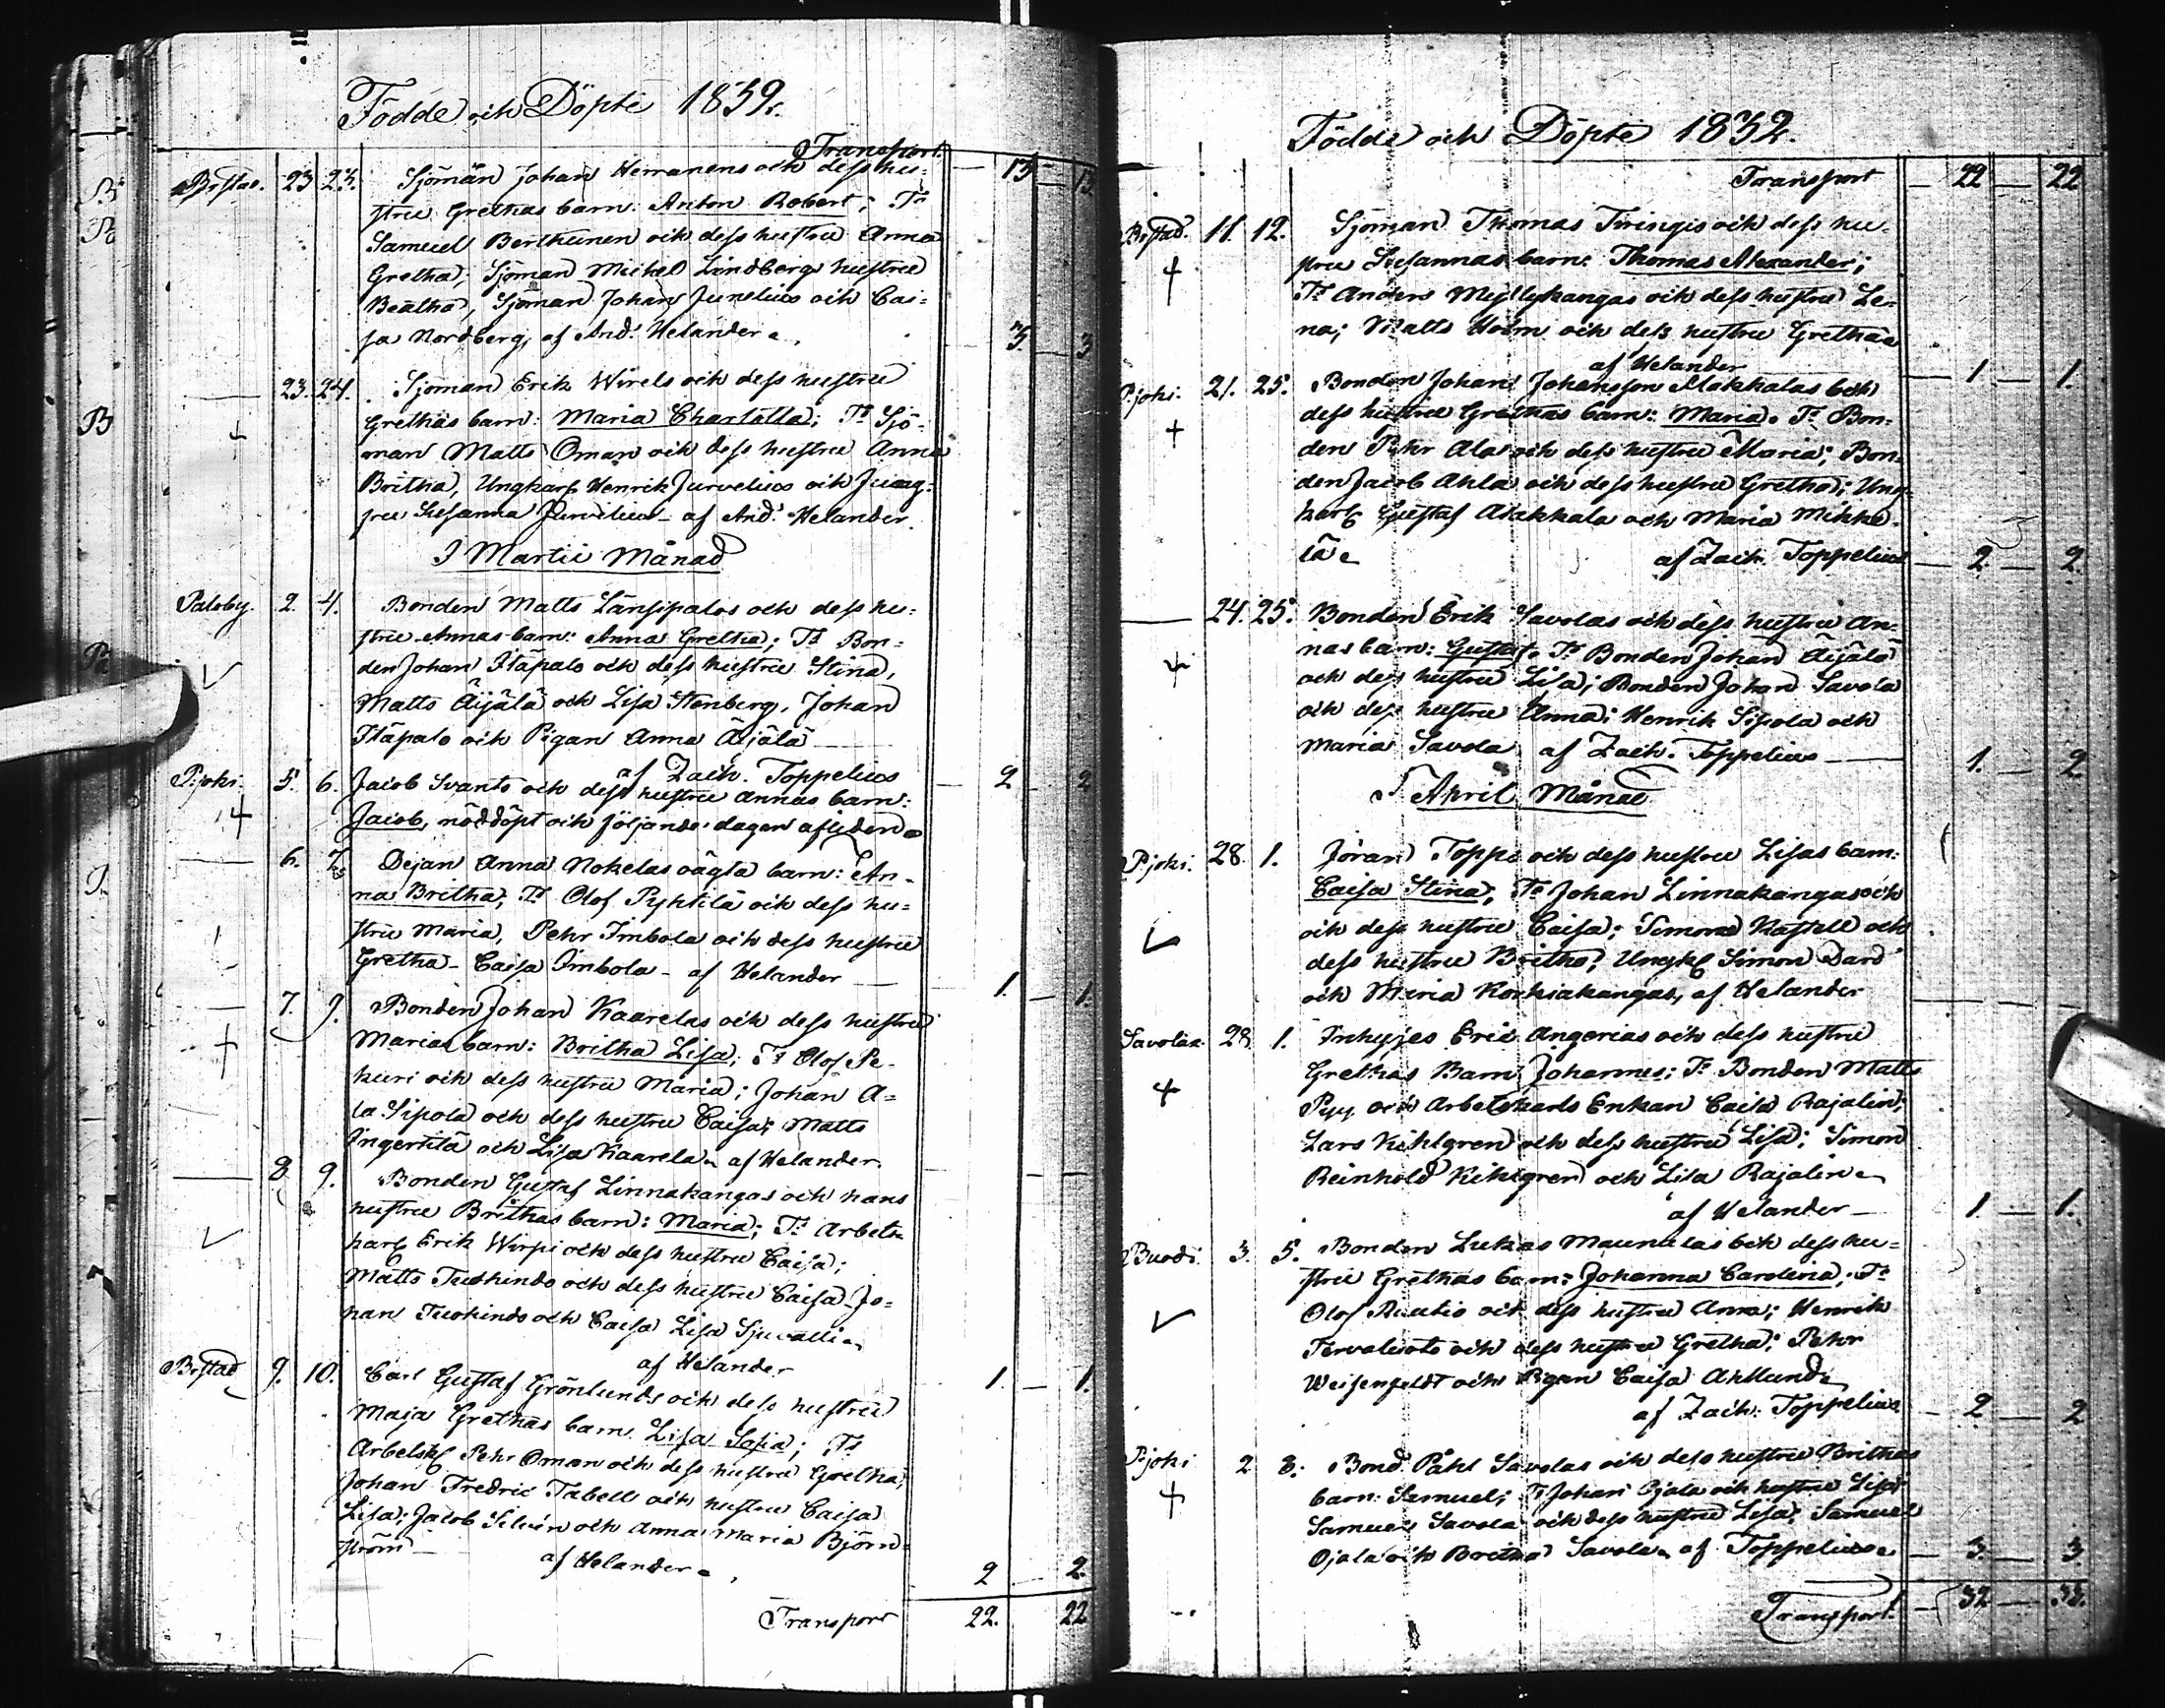 Födde och Döpte 1832.
Transport 13 13
Brstad. 23 23. Sjöman Johan Herranens och dess hu=
stru Grethas barn: Anton Robert; Ts
Samuel Berttunen och dess hustru Anna
Gretha; Sjöman Michel Lindbergs hustru
Beatha, Sjöman Johan Junelius och Cai=
sa Nordberg, af And. Helander. 3. 3
23. 24. Sjöman Erik Wirels och dess hustru
Grethas barn: Maria Charlotta; Ts Sjö=
man Matts Öman och dess hustru Anna
Britha, Ungkarl Henrik Jurvelius och Jung=
fru Susanna Jurvelius - af And. Helander.
I Martii Månad
Paloby. 2. 4. Bonden Matts Länsipalos och dess hu=
stru Annas barn: Anna Gretha; Ts Bon=
den Johan Itäpalo och dess hustru Stina,
Matts Äijälä och Lisa Stenberg, Johan
Itäpalo och Pigan Anna Äijälä
af Zach. Toppelius 2 2
P:joki. 5. 6. Jacob Svants och dess hustru Annas barn:
Jacob, nöddöpt och följande dagen afliden
6. 7. Dejan Anna Nokelas oägta barn: An-
na Britha; Ts Olof Pyhtilä och dess hu=
stru Maria, Pehr Imbola och dess hustru
Gretha - Caisa Imbola - af Helander 1. 1.
7. 9. Bonden Johan Kaarelas och dess hustru
Marias barn: Britha Lisa; Ts Olof Pe-
kuri och dess hustru Maria; Johan A=
la Sipola och dess hustru Caisa; Matts
Ingertilä och Lisa Kaarela af Helander.
8. 9. Bonden Gustaf Linnakangas och hans
hustru Brithas barn: Maria; Ts Arbets
karl Erik Wirpi och dess hustru Caisa;
Matts Tuohinds och dess hustru Caisa Jo=
han Tuohinds och Caisa Lisa
af Helander 1. 1.
Brstad 9. 10. Carl Gustaf Grönlunds och dess hustru
Maja Grethas barn Lisa Sofia; Ts
Arbetskl Pehr Öman och dess hustru Gretha;
Johan Fredric Tabell och hustru Caisa
Lisa; Jacob Silvén och Anna Maria Björn=
ström - af Helander 2 2.
Transport 22. 22
Födde och Döpte 1832.
Transport 22 22
Brstad. 11. 12. Sjöman Thomas Turingis och dess hu-
stru Susannas barn: Thomas Alexander;
Ts Anders Myllykangas och dess hustru Le=
na; Matts Holm och dess hustru Gretha
af Helander 1 1.
P:joki. 21. 25. Bonden Johan Johansson Makkalas och
dess hustru Grethas barn: Maria. Ts Bon=
den Pehr Alas och dess hustru Maria; Bon=
den Jacob Ahla och dess hustru Gretha; Ung=
karl Gustaf Makkala och Maria Mikko=
lä af Zach. Toppelius 2. 2.
24. 25. Bonden Erik Savolas och dess hustru An=
nas barn: Gustaf. Ts Bonden Johan Äijälä
och dess hustru Lisa; Bonden Johan Savola
och dess hustru Anna; Henrik Sipola och
Maria Savola af Zach. Toppelius 1. 2
I April Månad
P:joki. 28. 1. Jöran Toppi och dess hustru Lisas barn:
Caisa Stina; Ts Johan Linnakangas och
och dess hustru Caisa; Simon Kastell och
dess hustru Britha; Ungkl Simon Dard
och Maria Korkiakangas, af Helander
Savolax 28. 1. Inhyses Eric Angerias och dess hustru
Grethas Barn Johannes; Ts Bonden Matts
Pyy och Arbetskarls Enkan Caisa Rajalin;
Lars Kihlgren och dess hustru Lisa; Simon
Reinhold Kihlgren och Lisa Rajalin
af Helander 1. 1.
Buodi. 3. 5. Bonden Lukas Maunulas och dess hu=
stru Grethas barn: Johanna Carolina; Ts
Olof Ruutio och dess hustru Anna; Henrik
Tervaluoto och dess hustru Gretha; Pehr
Weisenfeldt och Pigan Caisa Ahllund
af Zach. Toppelius 2 2
P:joki 2 8. Bond. Påhl Savolas och dess hustru Brithas
barn: Samuel; Ts Johan Ojala och hustru Lisa;
Samuel Savola och dess hustru Lisa; Samuel
Ojala och Britha Savola af Toppelius 3. 3
Transport 32 33.